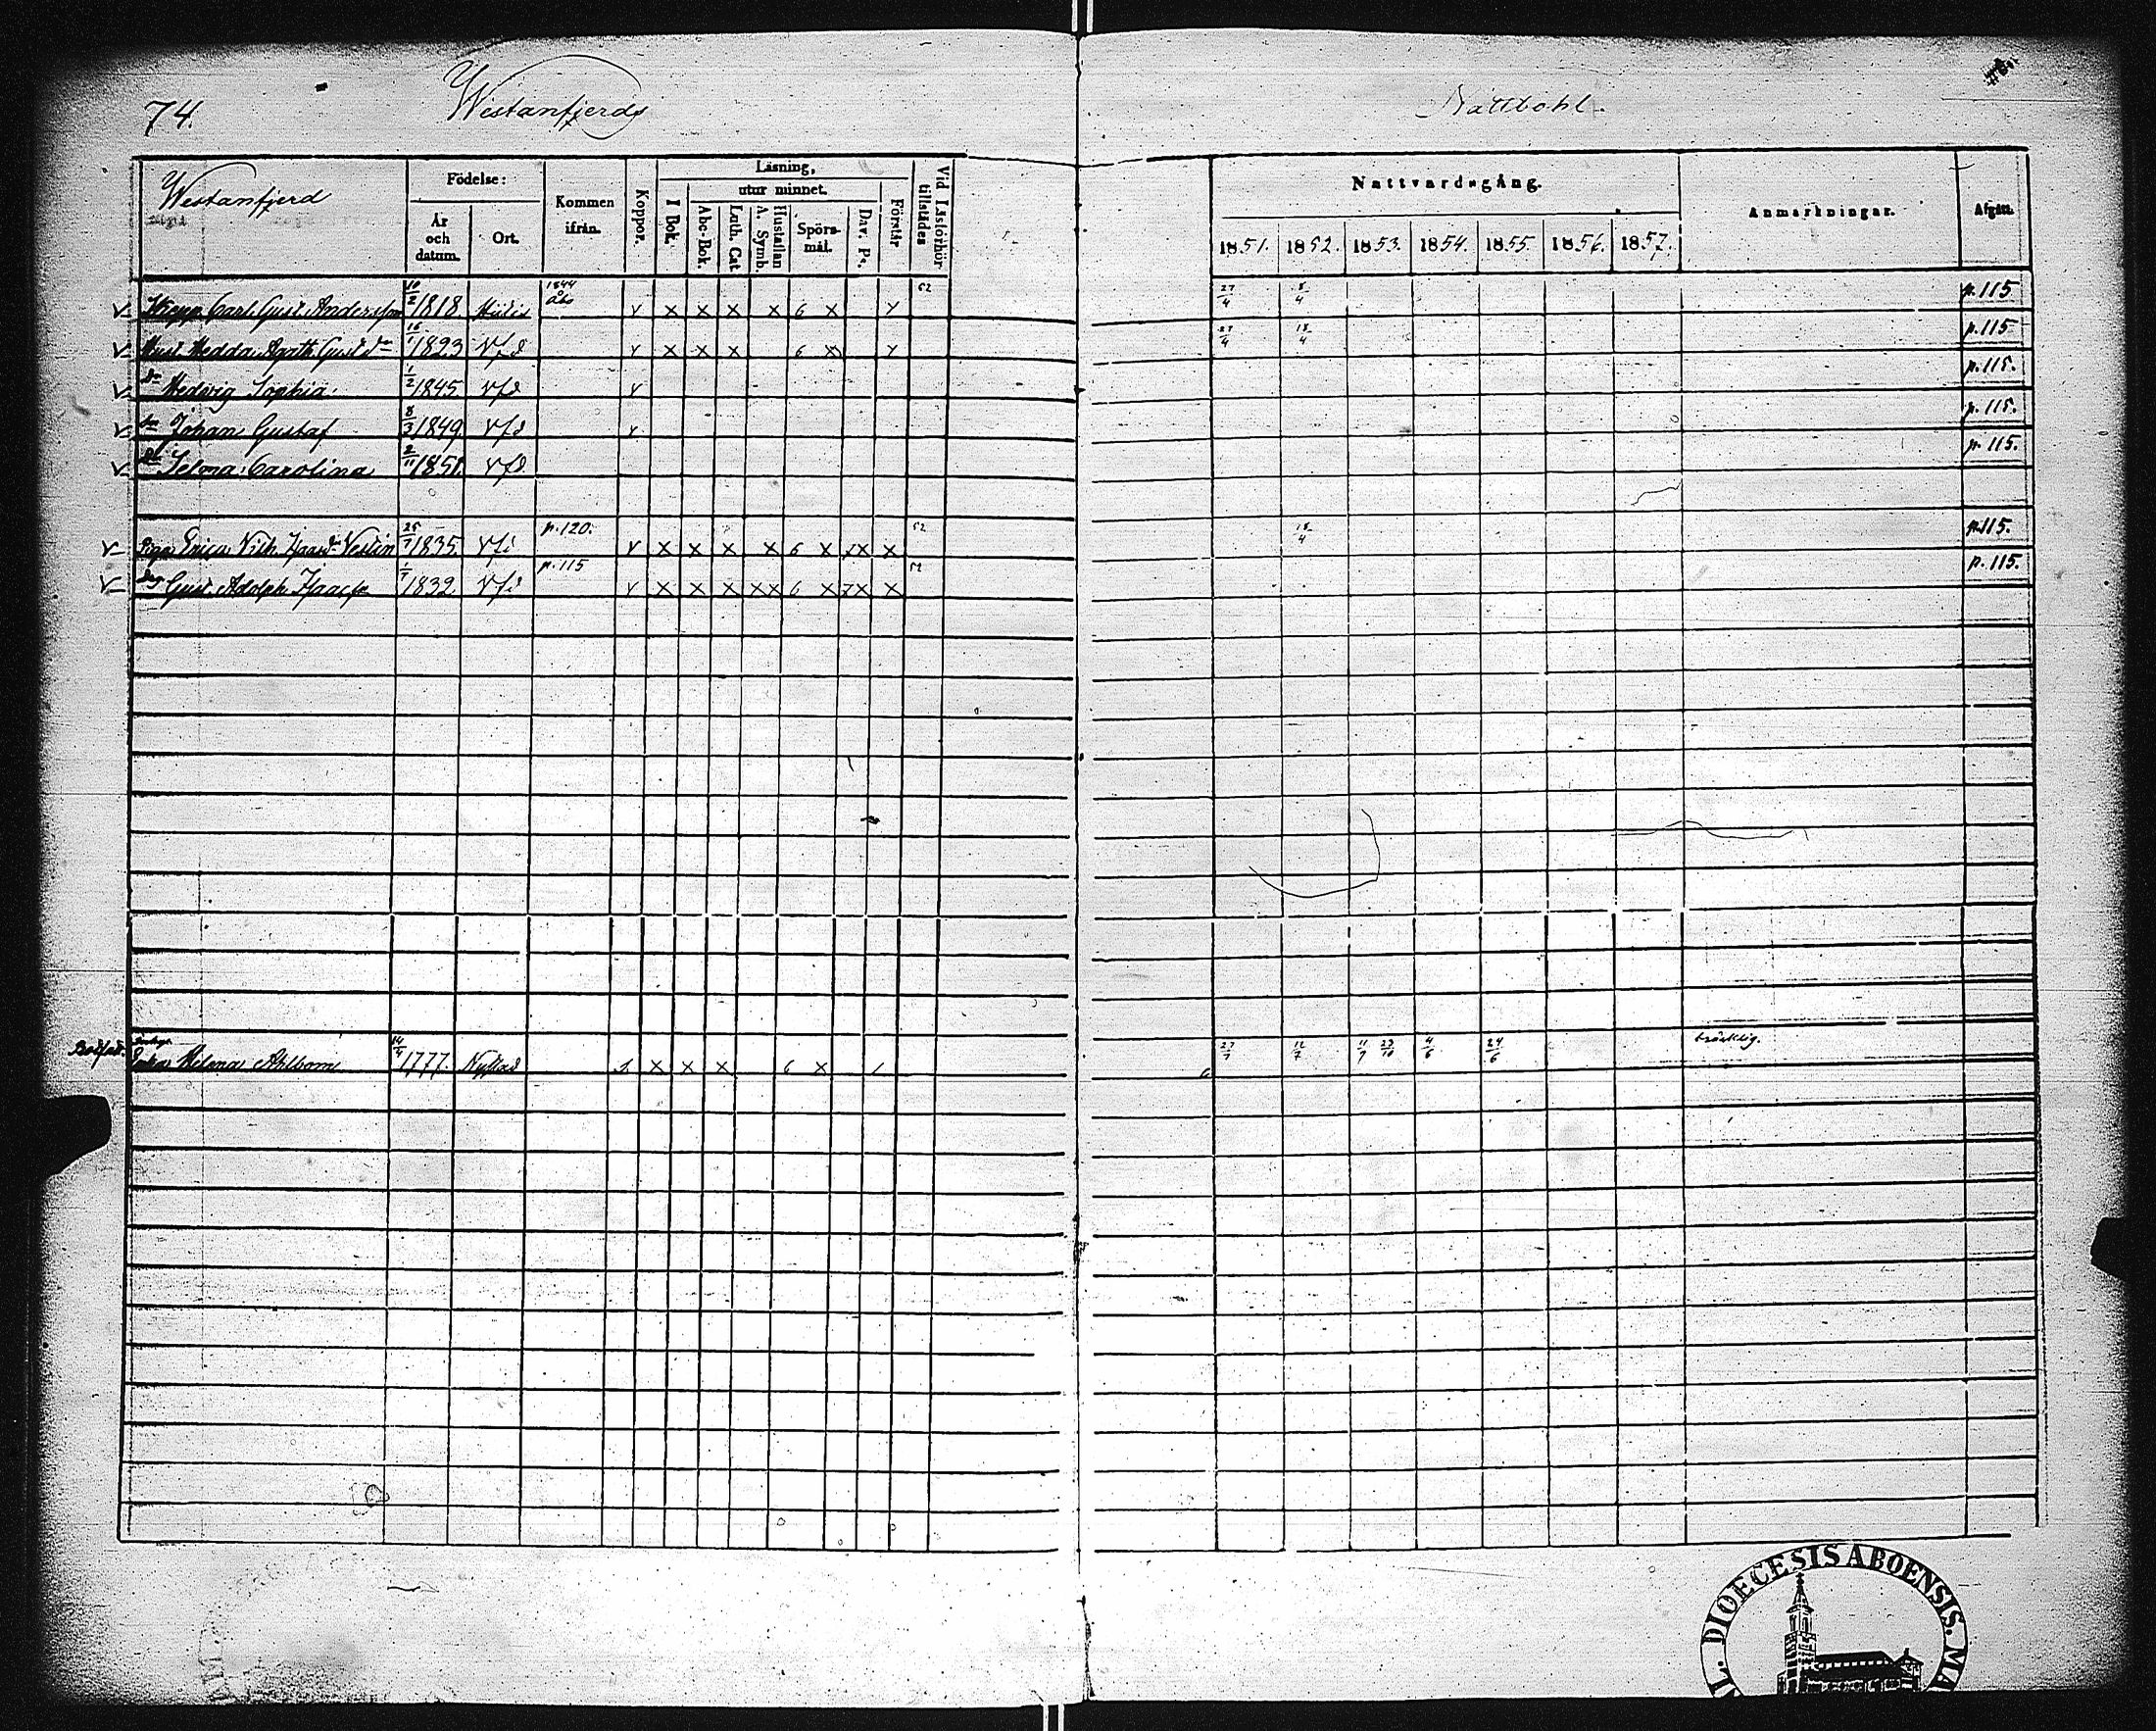 74.
Westanfjerds
Nättbohl.
Westanfjerd
Födelse:
År och datum.
Ort.
Kommen ifrån.
Koppor.
Läsning,
I Bok.
utur minnet.
Abc-Bok.
Luth. Cat
Hustaflan A. Symb.
Spörs-mål.
Dav. Ps.
Förstår
Vid Läsförhör tillstädes
Nattvardsgång.
1851. 1852. 1853. 1854. 1855. 1856. 1857.
Anmärkningar.
Afgått.
V Carl Gust Andersson 10/2 1818 1844 Åbo v x x x x 6 x v 52 27/4 p. 115
V Hust Hedda Agath Gustdr 1823 Vfd v x x x 6 x v 27/4 18/4 p. 115
V dr Hedvig Sophia 1/2 1845 Vfd v p. 115.
V sn Johan Gustaf 8/3 1849 Vfd v p. 115.
V dr Selma Carolina 2/11 1851. Vfd p. 115.
V Piga Erica Vilh. Isacsdr Vestin 25/7 1835 Vfd p. 120. v x x x x 6 x x x 52 18/4 p. 115
V Drg Gust. Adolph Isacss 1832 Vfd p. 115 v x x x x x 6 x 7 x x 52 p. 115.
Enka Helena Ahlbom 14/4 1777. Nystad x x x 6 x 27/7 12/7 11/7 23/10 4/6 24/6 bräcklig.
DIOECESIS ABOENSIS.